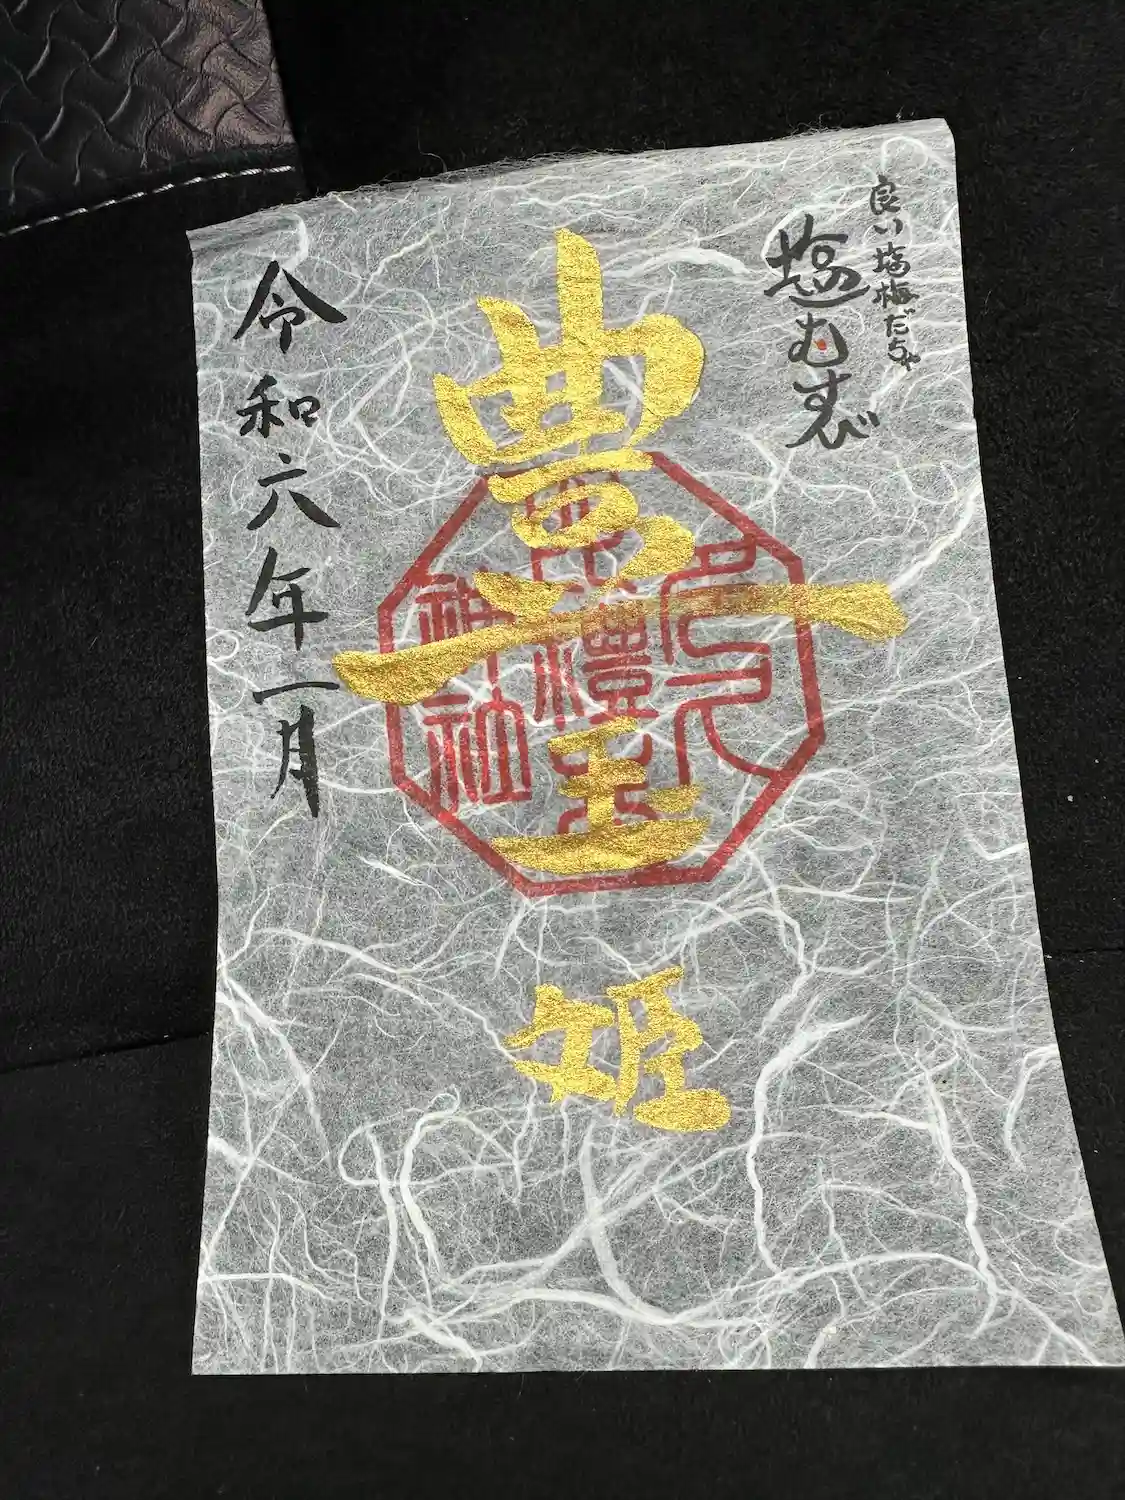 良い塩梅だちゃ
塩むすび
豊玉姫
神社
令和六年一月